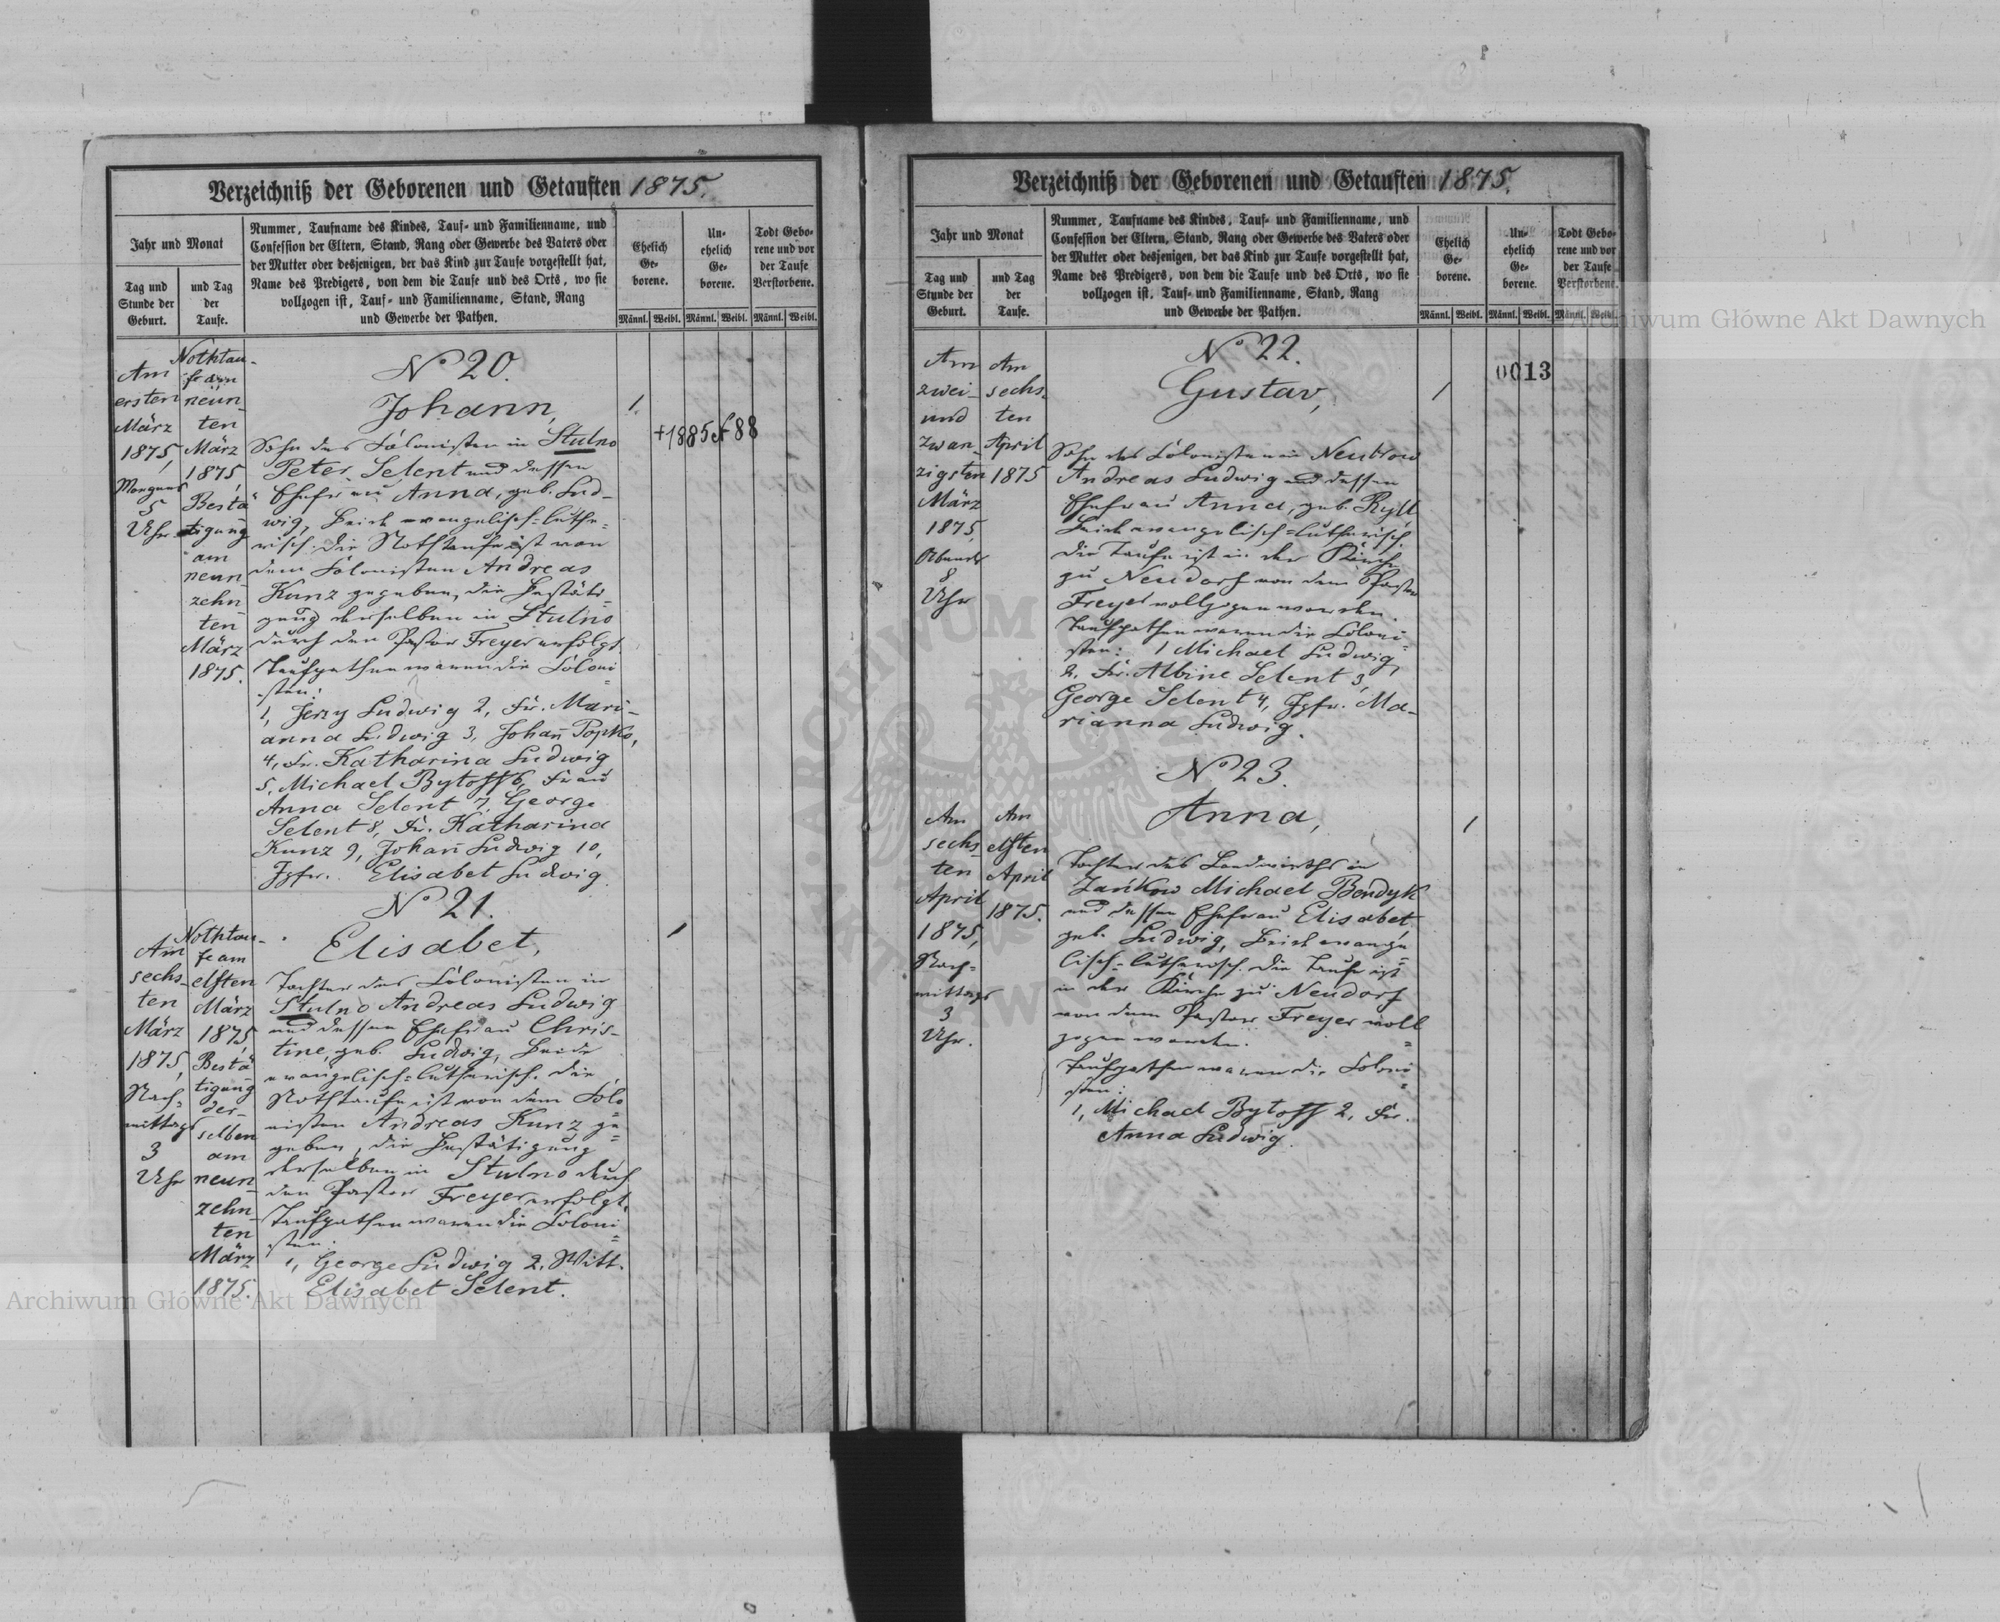 Verzeichniß der Geborenen und Getauften 1875.
Jahr und Monat
Tag und
Stunde der
Geburt.
und Tag
der
Taufe.
Nummer, Taufname des Kindes, Tauf- und Familienname, und
Confession der Eltern, Stand, Rang oder Gewerbe des Vaters oder
der Mutter oder desjenigen, der das Kind zur Taufe vorgestellt hat,
Name des Predigers, von dem die Taufe und des Orts, wo sie
vollzogen ist, Tauf- und Familienname, Stand, Rang
und Gewerbe der Pathen.
Ehelich
Ge-
borene.
Un-
ehelich
Ge-
borene.
Todt Gebo-
rene und vor
der Taufe
Verstorbene.
Männl. Weibl. Männl. Weibl. Männl. Weibl.
Am
ersten
März
1875,
Morgens
5
Uhr
Nothtau-
fe am
neun-
ten
März
1875,
Bestä-
tigung
am
neun
zehn-
ten
März
1875.
No 20.
Johann,
Sohn des Colonisten in Stulno
Peter Selent und dessen
Ehefrau Anna, geb. Lud-
wig, Beide evangelisch-luthe-
risch. Die Nothtaufe ist von
dem Colonisten Andreas
Kunz gegeben, die Bestäti-
gung derselben in Stulno
durch den Pastor Freyer erfolgt.
Taufpathen waren die Coloni-
sten:
1, Jerzy Ludwig 2, Fr. Mari-
anna Ludwig 3, Johañ Popko,
4, Fr. Katharina Ludwig
5, Michael Bytoff 6, Frau
Anna Selent 7, George
Selent 8, Fr. Katharina
Kunz 9, Johañ Ludwig 10,
Jgfr. Elisabet Ludwig.
1.
+1885 88
Am
sechs-
ten
März
1875,
Nach-
mittags
3
Uhr
Nothtau-
fe am
elften
März
1875,
Bestä-
tigung
der-
selben
am
neun-
zehn-
ten
März
1875.
No 21.
Elisabet,
Tochter des Colonisten in
Stulno Andreas Ludwig
und dessen Ehefrau Chris-
tine, geb. Ludwig, Beide
evangelisch-lutherisch. Die
Nothtaufe ist von dem Colo-
nisten Andreas Kunz ge-
geben, die Bestätigung
derselben in Stulno durch
den Pastor Freyer erfolgt.
Taufpathen waren die Coloni-
sten:
1, George Ludwig 2, Witt.
Elisabet Selent.
1
Verzeichniß der Geborenen und Getauften 1875.
Jahr und Monat
Tag und
Stunde der
Geburt.
und Tag
der
Taufe.
Nummer, Taufname des Kindes, Tauf- und Familienname, und
Confession der Eltern, Stand, Rang oder Gewerbe des Vaters oder
der Mutter oder desjenigen, der das Kind zur Taufe vorgestellt hat,
Name des Predigers, von dem die Taufe und des Orts, wo sie
vollzogen ist, Tauf- und Familienname, Stand, Rang
und Gewerbe der Pathen.
Ehelich
Ge-
borene.
Un-
ehelich
Ge-
borene.
Todt Gebo-
rene und vor
der Taufe
Verstorbene.
Männl. Weibl. Männl. Weibl. Männl. Weibl.
0013
Am
zwei-
und
zwan-
zigsten
März
1875,
Abends
8
Uhr
Am
sechs-
ten
April
1875
No 22.
Gustav,
Sohn des Colonisten in Neubrow
Andreas Ludwig und dessen
Ehefrau Anna, geb. Ryll
Beide evangelisch-lutherisch.
Die Taufe ist in der Kirche
zu Neudorf von dem Pastor
Freyer vollzogen worden.
Taufpathen waren die Coloni-
sten: 1 Michael Ludwig,
2, Fr. Albine Selent 3,
George Selent 4, Jgfr. Ma-
rianna Ludwig.
1
Am
sechs-
ten
April
1875,
Nach-
mittags
3
Uhr.
Am
elften
April
1875.
No 23.
Anna,
Tochter des Landwirths in
Zańkow Michael Bendyk
und dessen Ehefrau Elisabet
geb. Ludwig, Beide evange-
lisch-lutherisch. Die Taufe ist
in der Kirche zu Neudorf
von dem Pastor Freyer voll-
zogen worden.
Taufpathen waren die Coloni-
sten:
1, Michael Bytoff 2, Fr.
Anna Ludwig.
1
Archiwum Główne Akt Dawnych
Archiwum Główne Akt Dawnych